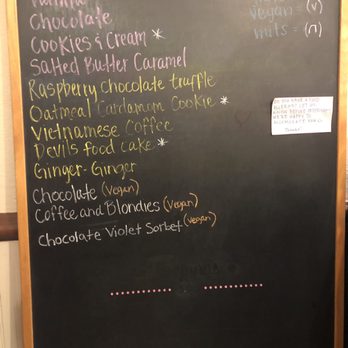 Chocolate
Cookies & Cream *
Salted Butter Caramel
Raspberry Chocolate truffle
Oatmeal Cardamom Cookie *
Vietnamese Coffee
Devils food cake *
Ginger-Ginger
Chocolate (vegan)
Coffee and Blondies (vegan)
Chocolate Violet Sorbet (vegan)
vegan = (v)
nuts = (n)